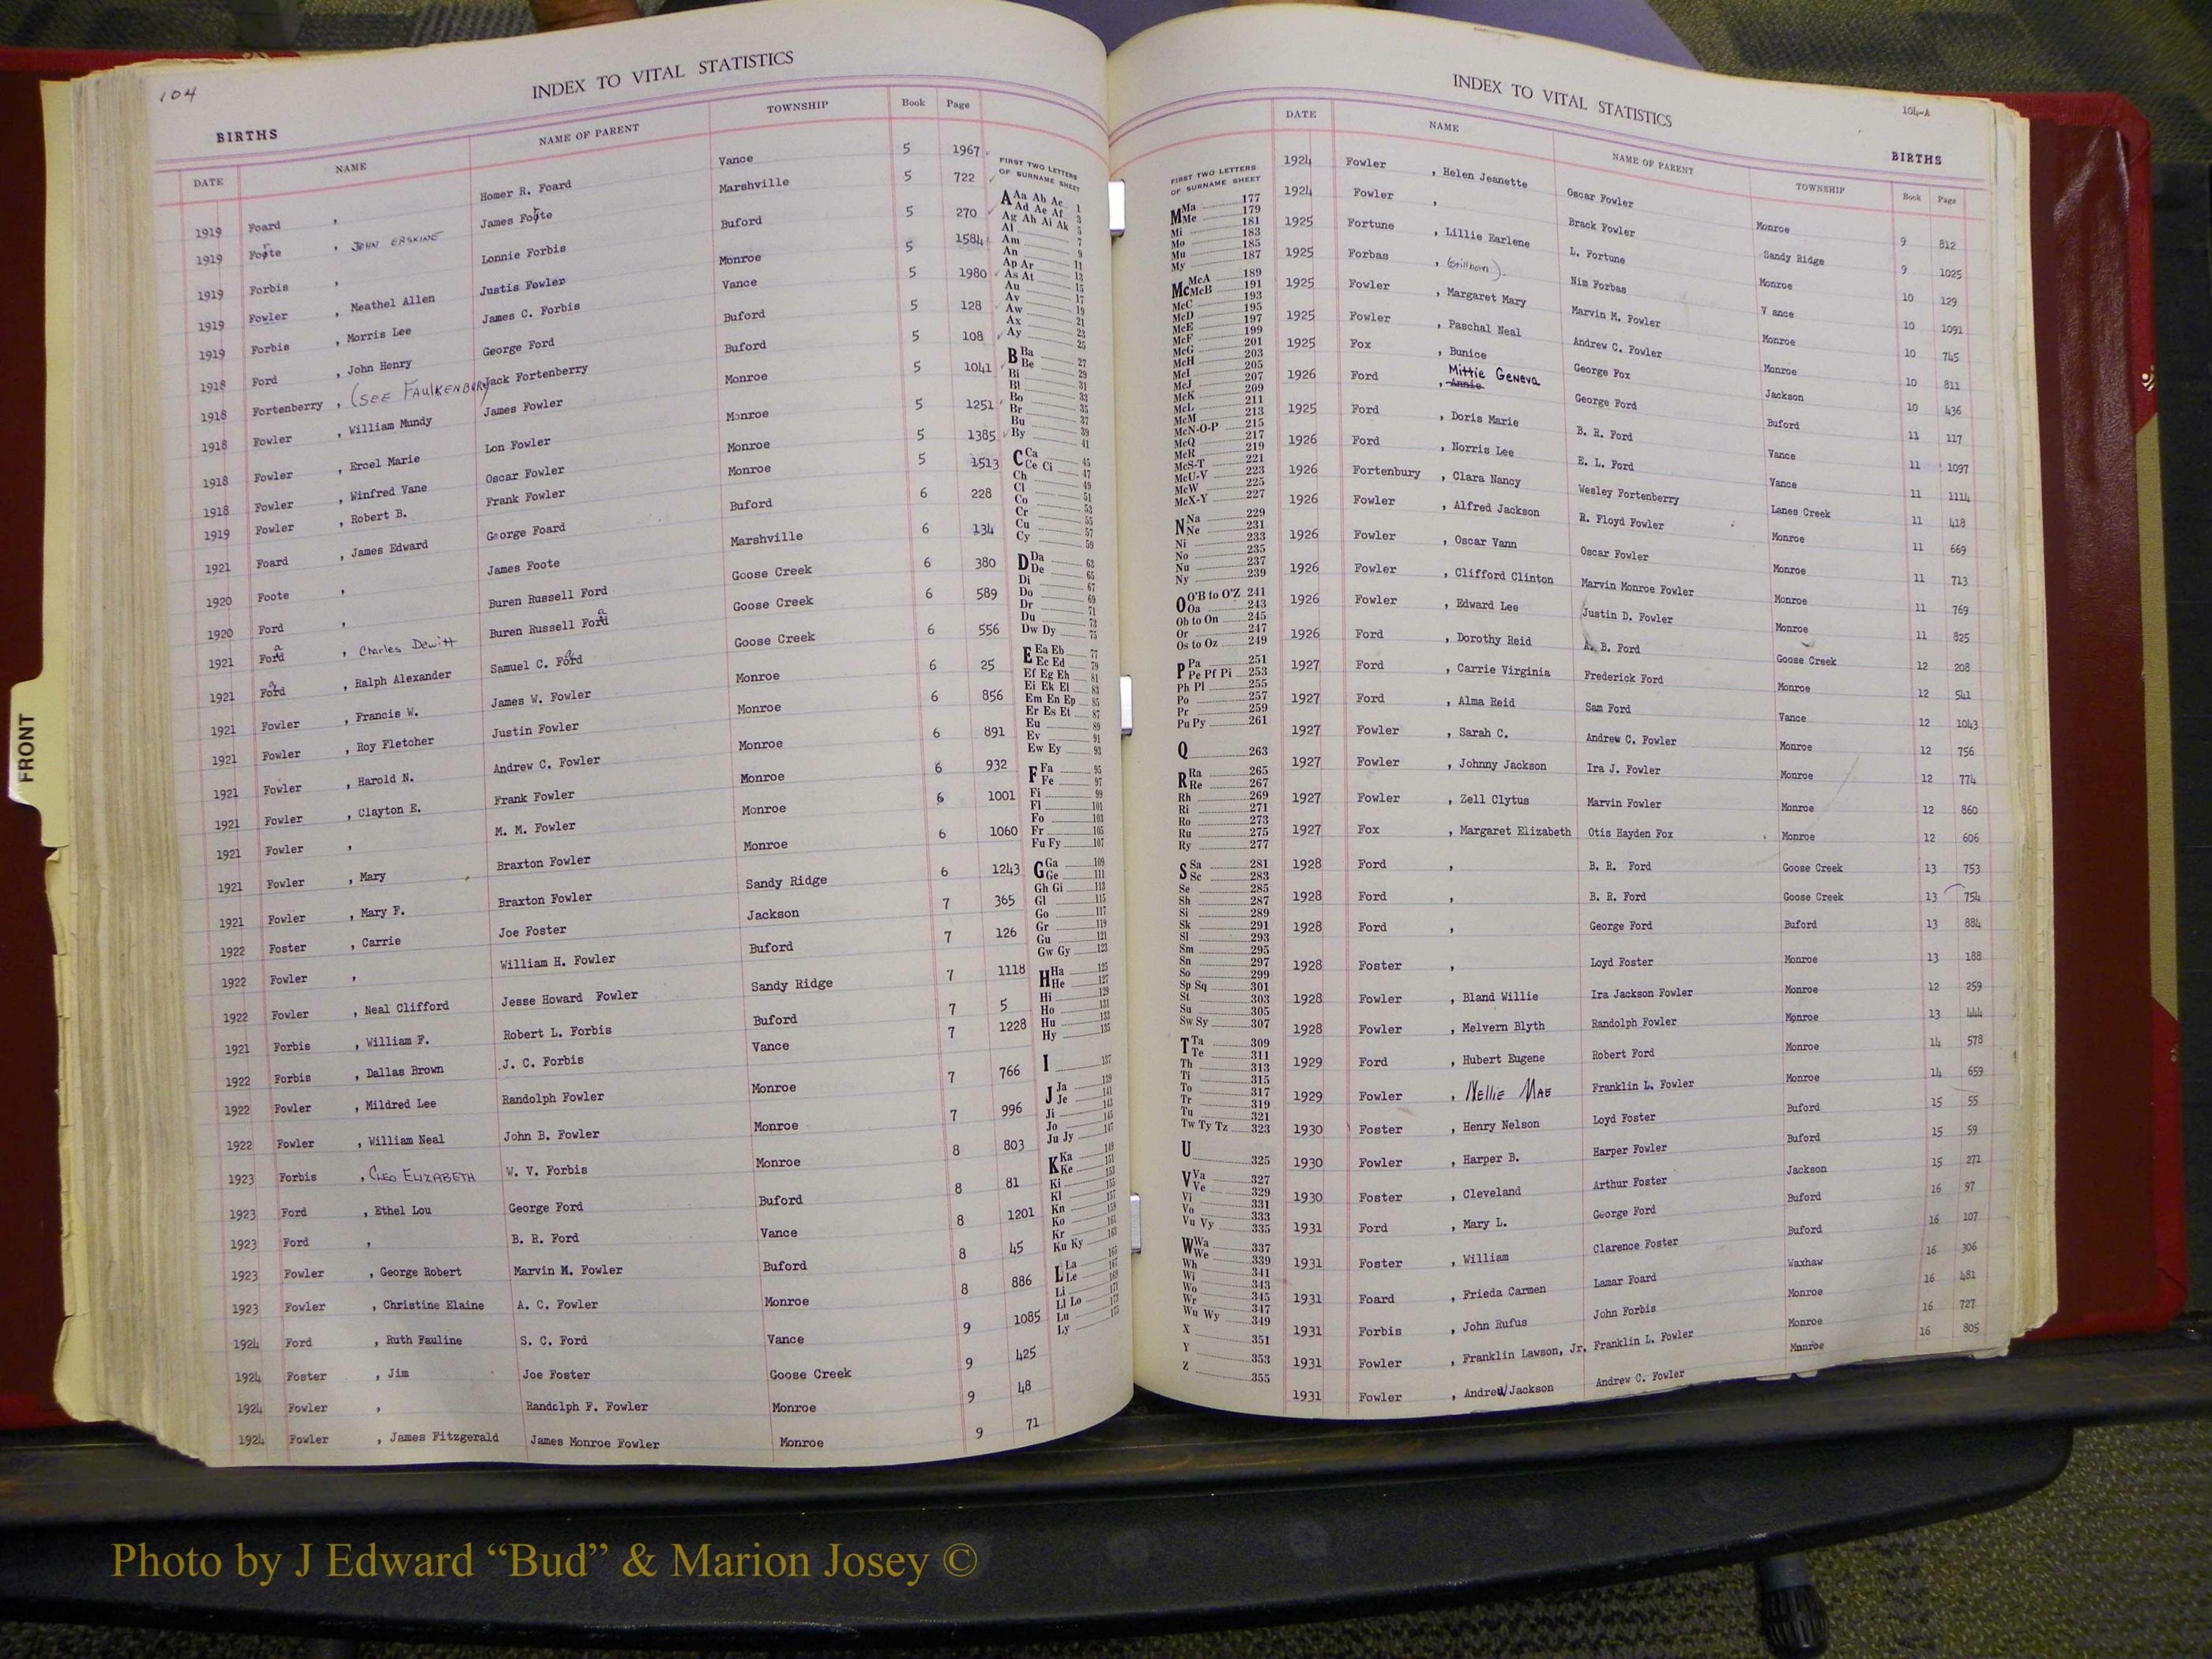 104
INDEX TO VITAL STATISTICS
BIRTHS
DATE NAME NAME OF PARENT TOWNSHIP Book Page
1919 Foard , Homer R. Foard Vance 5 1967
1919 Foote , JOHN ERSKINE James Foote Marshville 5 722
1919 Forbis , Lonnie Forbis Buford 5 270
1919 Fowler , Meathel Allen Justis Fowler Monroe 5 1584
1919 Forbis , Morris Lee James C. Forbis Vance 5 1980
1918 Ford , John Henry George Ford Buford 5 128
1918 Fortenberry , (SEE FAULKENBURY Jack Fortenberry Buford 5 108
1918 Fowler , William Mundy James Fowler Monroe 5 1041
1918 Fowler , Ercel Marie Lon Fowler Monroe 5 1251
1918 Fowler , Winfred Vane Oscar Fowler Monroe 5 1385
1919 Fowler , Robert B. Frank Fowler Monroe 5 1513
1921 Foard , James Edward George Foard Buford 6 228
1920 Foote , James Foote Marshville 6 134
1920 Ford , Buren Russell Ford Goose Creek 6 380
1921 Foard , Charles Dewitt Buren Russell Foard Goose Creek 6 589
1921 Foard , Ralph Alexander Samuel C. Foard Goose Creek 6 556
1921 Fowler , Francis W. James W. Fowler Monroe 6 25
1921 Fowler , Roy Fletcher Justin Fowler Monroe 6 856
1921 Fowler , Harold N. Andrew C. Fowler Monroe 6 891
1921 Fowler , Clayton E. Frank Fowler Monroe 6 932
1921 Fowler , M. M. Fowler Monroe 6 1001
1921 Fowler , Mary Braxton Fowler Monroe 6 1060
1921 Fowler , Mary F. Braxton Fowler Sandy Ridge 6 1243
1922 Foster , Carrie Joe Foster Jackson 7 365
1922 Fowler , William H. Fowler Buford 7 126
1922 Fowler , Neal Clifford Jesse Howard Fowler Sandy Ridge 7 1118
1921 Forbis , William F. Robert L. Forbis Buford 7 5
1922 Forbis , Dallas Brown J. C. Forbis Vance 7 1228
1922 Fowler , Mildred Lee Randolph Fowler Monroe 7 766
1922 Fowler , William Neal John B. Fowler Monroe 7 996
1923 Forbis , CLEO ELIZABETH W. V. Forbis Monroe 8 803
1923 Ford , Ethel Lou George Ford Buford 8 81
1923 Ford , B. R. Ford Vance 8 1201
1923 Fowler , George Robert Marvin M. Fowler Buford 8 45
1923 Fowler , Christine Elaine A. C. Fowler Monroe 8 886
1924 Ford , Ruth Pauline S. C. Ford Vance 9 1085
1924 Foster , Jim Joe Foster Goose Creek 9 425
1924 Fowler , Randolph F. Fowler Monroe 9 48
1924 Fowler , James Fitzgerald James Monroe Fowler Monroe 9 71
FIRST TWO LETTERS
OF SURNAME SHEET
A Aa Ab Ac 1
Ad Ae Af 3
Ag Ah Ai Ak 5
Al 7
Am 9
An 11
Ap Ar 13
As At 15
Au 17
Av 19
Aw 21
Ax 23
Ay 25
B Ba 27
Be 29
Bi 31
Bl 33
Bo 35
Br 37
Bu 39
By 41
C Ca 45
Ce Ci 47
Ch 49
Cl 51
Co 53
Cr 55
Cu 57
Cy 59
D Da 63
De 65
Di 67
Do 69
Dr 71
Du 73
Dw Dy 75
E Ea Eb 77
Ec Ed 79
Ef Eg Eh 81
Ei Ek El 83
Em En Ep 85
Er Es Et 87
Eu 89
Ev 91
Ew Ey 93
F Fa 95
Fe 97
Fi 99
Fl 101
Fo 103
Fr 105
Fu Fy 107
G Ga 109
Ge 111
Gh Gi 113
Gl 115
Go 117
Gr 119
Gu 121
Gw Gy 123
H Ha 125
He 127
Hi 129
Ho 131
Hu 133
Hy 135
I 137
J Ja 139
Je 141
Ji 143
Jo 145
Ju Jy 147
K Ka 149
Ke 151
Ki 153
Kl 155
Kn 157
Ko 159
Kr 161
Ku Ky 163
L La 165
Le 167
Li 169
Ll Lo 171
Lu 173
Ly 175
FRONT
INDEX TO VITAL STATISTICS
104-A
BIRTHS
FIRST TWO LETTERS
OF SURNAME SHEET
M Ma 177
Me 179
Mi 181
Mo 183
Mu 185
My 187
Mc McA 189
McB 191
McC 193
McD 195
McE 197
McF 199
McG 201
McH 203
McI 205
McJ 207
McK 209
McL 211
McM 213
McN-O-P 215
McQ 217
McR 219
McS-T 221
McU-V 223
McW 225
McX-Y 227
N Na 229
Ne 231
Ni 233
No 235
Nu 237
Ny 239
O O'B to O'Z 241
Oa 243
Ob to On 245
Or 247
Os to Oz 249
P Pa 251
Pe Pf Pi 253
Ph Pl 255
Po 257
Pr 259
Pu Py 261
Q 263
R Ra 265
Re 267
Rh 269
Ri 271
Ro 273
Ru 275
Ry 277
S Sa 281
Sc 283
Se 285
Sh 287
Si 289
Sk 291
Sl 293
Sm 295
Sn 297
So 299
Sp Sq 301
St 303
Su 305
Sw Sy 307
T Ta 309
Te 311
Th 313
Ti 315
To 317
Tr 319
Tu 321
Tw Ty Tz 323
U 325
V Va 327
Ve 329
Vi 331
Vo 333
Vu Vy 335
W Wa 337
We 339
Wh 341
Wi 343
Wo 345
Wr 347
Wu Wy 349
X 351
Y 353
Z 355
DATE NAME NAME OF PARENT TOWNSHIP Book Page
1924 Fowler , Helen Jeanette Oscar Fowler Monroe 9 812
1924 Fowler , Brack Fowler Sandy Ridge 9 1025
1925 Fortune , Lillie Earlene L. Fortune Monroe 10 129
1925 Forbas , (Stillborn) Nim Forbas Vance 10 1091
1925 Fowler , Margaret Mary Marvin M. Fowler Monroe 10 745
1925 Fowler , Paschal Neal Andrew C. Fowler Monroe 10 811
1925 Fox , Bunice George Fox Jackson 10 436
1926 Ford , Annie Mittie Geneva George Ford Buford 11 117
1925 Ford , Doris Marie B. R. Ford Vance 11 1097
1926 Ford , Norris Lee E. L. Ford Vance 11 1114
1926 Fortenbury , Clara Nancy Wesley Fortenberry Lanes Creek 11 418
1926 Fowler , Alfred Jackson R. Floyd Fowler Monroe 11 669
1926 Fowler , Oscar Vann Oscar Fowler Monroe 11 713
1926 Fowler , Clifford Clinton Marvin Monroe Fowler Monroe 11 769
1926 Fowler , Edward Lee Justin D. Fowler Monroe 11 825
1926 Ford , Dorothy Reid A. B. Ford Goose Creek 12 208
1927 Ford , Carrie Virginia Frederick Ford Monroe 12 541
1927 Ford , Alma Reid Sam Ford Vance 12 1043
1927 Fowler , Sarah C. Andrew C. Fowler Monroe 12 756
1927 Fowler , Johnny Jackson Ira J. Fowler Monroe 12 774
1927 Fowler , Zell Clytus Marvin Fowler Monroe 12 860
1927 Fox , Margaret Elizabeth Otis Hayden Fox Monroe 12 606
1928 Ford , B. R. Ford Goose Creek 13 753
1928 Ford , B. R. Ford Goose Creek 13 754
1928 Ford , George Ford Buford 13 884
1928 Foster , Loyd Foster Monroe 13 188
1928 Fowler , Bland Willie Ira Jackson Fowler Monroe 12 259
1928 Fowler , Melvern Blyth Randolph Fowler Monroe 13 444
1929 Ford , Hubert Eugene Robert Ford Monroe 14 578
1929 Fowler , NELLIE MAE Franklin L. Fowler Monroe 14 659
1930 Foster , Henry Nelson Loyd Foster Buford 15 55
1930 Fowler , Harper B. Harper Fowler Buford 15 59
1930 Foster , Cleveland Arthur Foster Jackson 15 271
1931 Ford , Mary L. George Ford Buford 16 97
1931 Foster , William Clarence Foster Buford 16 107
1931 Foard , Frieda Carmen Lamar Foard Waxhaw 16 306
1931 Forbis , John Rufus John Forbis Monroe 16 481
1931 Fowler , Franklin Lawson, Jr. Franklin L. Fowler Monroe 16 727
1931 Fowler , Andrew Jackson Andrew C. Fowler Monroe 16 805
Photo by J Edward “Bud” & Marion Josey ©